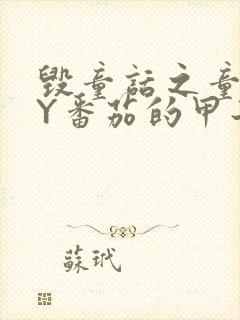 毁童话之童
Y番茄的甲
蘇玳